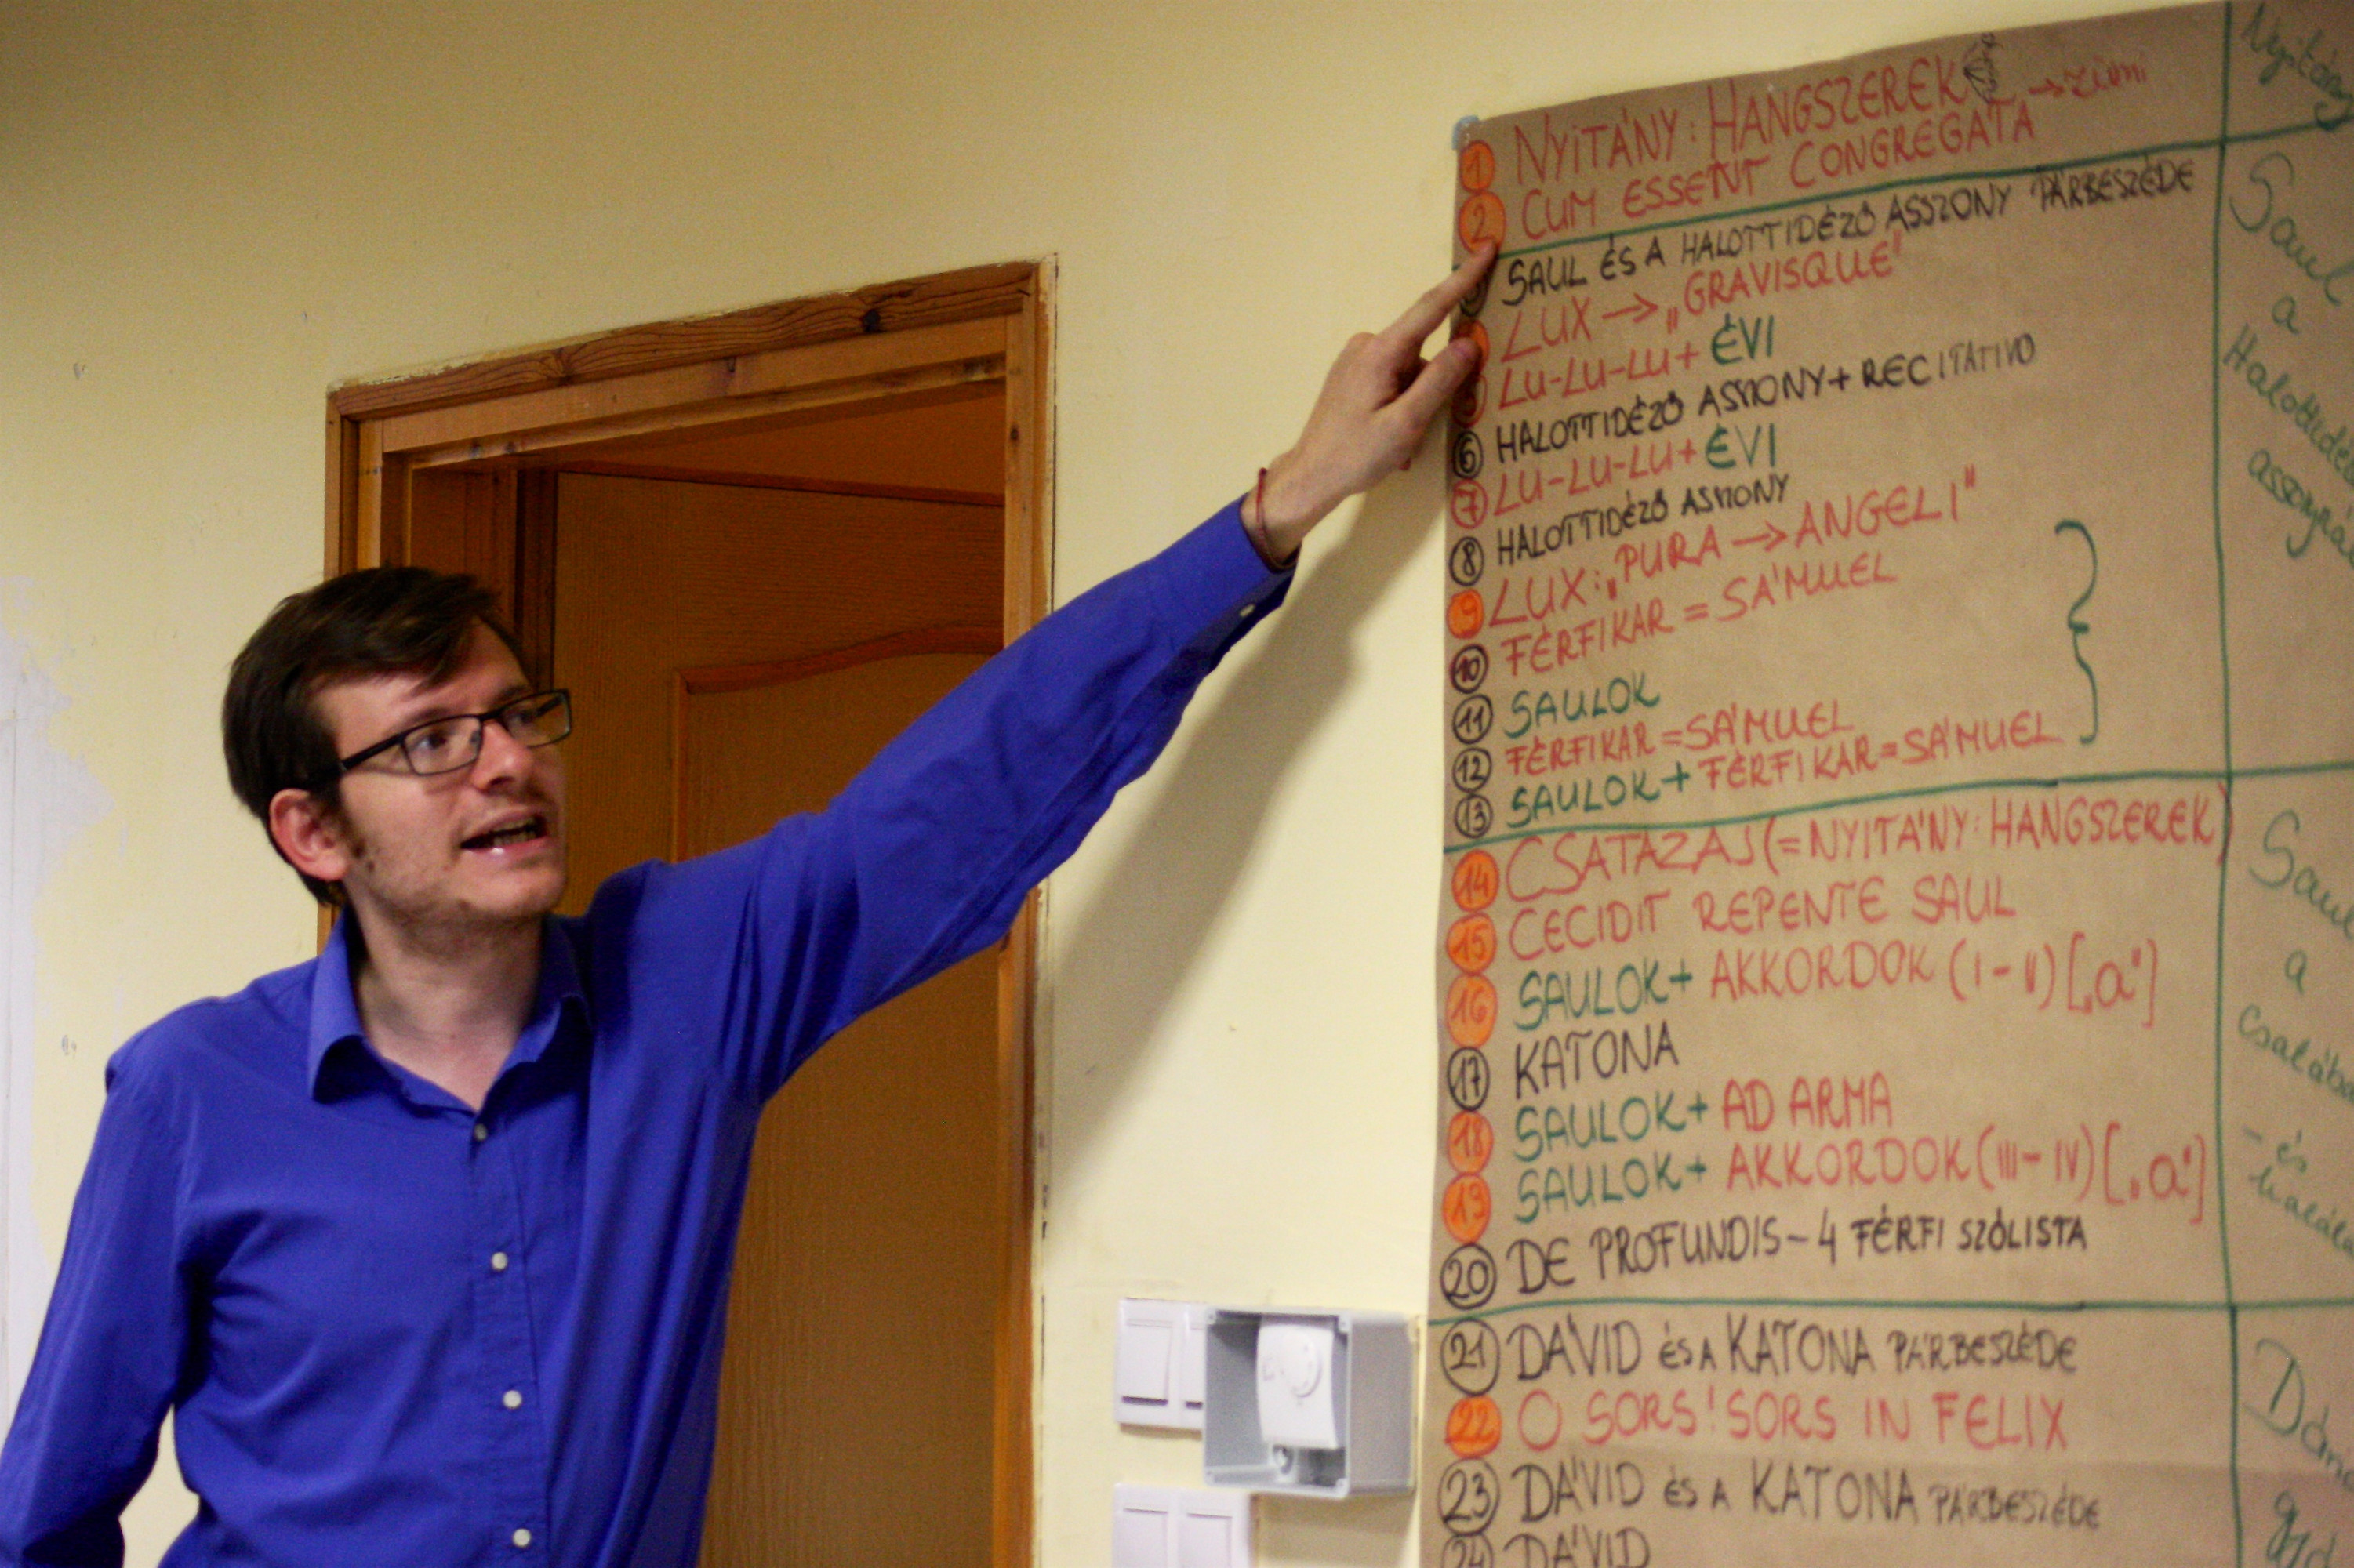 1 NYITÁNY: HANGSZEREK
2 CUM ESSENT CONGREGATA
SAUL ÉS A HALOTTIDÉZŐ ASSZONY PÁRBESZÉDE
LUX → „GRAVISQUE"
LU-LU-LU+ ÉVI
6 HALOTTIDÉZŐ ASSZONY + RECITATIVO
7 LU-LU-LU+ ÉVI
8 HALOTTIDÉZŐ ASSZONY
9 LUX: „PURA → ANGELI"
10 FÉRFIKAR = SÁMUEL
11 SAULOK
12 FÉRFIKAR = SÁMUEL
13 SAULOK + FÉRFIKAR = SÁMUEL
14 CSATAZAJ (= NYITÁNY: HANGSZEREK)
15 CECIDIT REPENTE SAUL
16 SAULOK + AKKORDOK (I-II) [„a"]
17 KATONA
18 SAULOK + AD ARMA
19 SAULOK + AKKORDOK (III-IV) [„a"]
20 DE PROFUNDIS - 4 FÉRFI SZÓLISTA
21 DÁVID ÉS A KATONA PÁRBESZÉDE
22 O SORS! SORS IN FELIX
23 DÁVID ÉS A KATONA PÁRBESZÉDE
24 DÁVID
Nyitány
Saul
a
Saul
a
- és